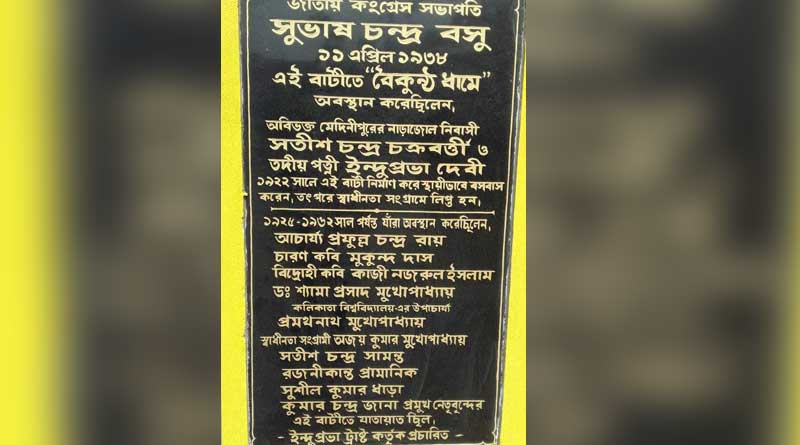 জাতীয় কংগ্রেস সভাপতি
সুভাষ চন্দ্র বসু
১১ এপ্রিল ১৯৩৮
এই বাটীতে “বৈকুন্ঠ ধামে”
অবস্থান করেছিলেন,
অবিভক্ত মেদিনীপুরের নাড়াজোল নিবাসী
সতীশ চন্দ্র চক্রবর্ত্তী ও
তদীয় পত্নী ইন্দুপ্রভা দেবী
১৯২২ সালে এই বাটী নির্মাণ করে স্থায়ীভাবে বসবাস
করেন, তৎপরে স্বাধীনতা সংগ্রামে লিপ্ত হন,
১৯২৫-১৯৬২ সাল পর্যন্ত যাঁরা অবস্থান করেছিলেন,
আচার্য্য প্রফুল্ল চন্দ্র রায়
চারণ কবি মুকুন্দ দাস
বিদ্রোহী কবি কাজী নজরুল ইসলাম
ডঃ শ্যামা প্রসাদ মুখোপাধ্যায়
কলিকাতা বিশ্ববিদ্যালয়-এর উপাচার্য্য
প্রমথনাথ মুখোপাধ্যায়
স্বাধীনতা সংগ্রামী অজয় কুমার মুখোপাধ্যায়
সতীশ চন্দ্র সামন্ত
রজনীকান্ত প্রামানিক
সুশীল কুমার ধাড়া
কুমার চন্দ্র জানা প্রমুখ নেতৃবৃন্দের
এই বাটীতে যাতায়াত ছিল,
- ইন্দুপ্রভা ট্রাষ্ট কর্তৃক প্রচারিত -